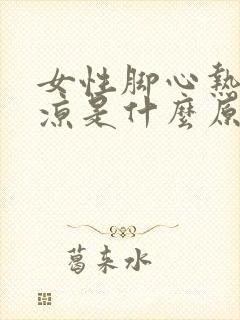 女性脚心熱
涼是什麼原
葛未水